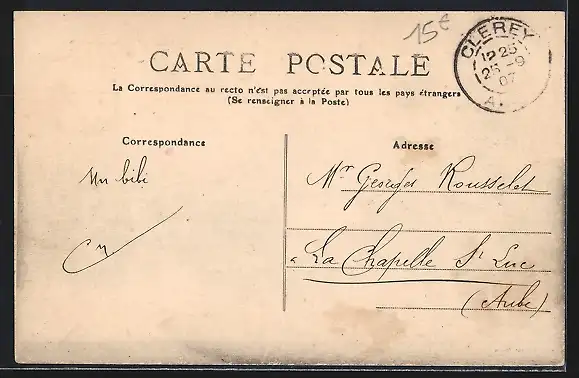 15€
CLEREY
12 25
25 -9
07
A.
CARTE POSTALE
La Correspondance au recto n'est pas acceptée par tous les pays étrangers
(Se renseigner à la Poste)
Correspondance
Adresse
Un bibi
Mr Georges Rousselet
La Chapelle St Luc
(Aube)